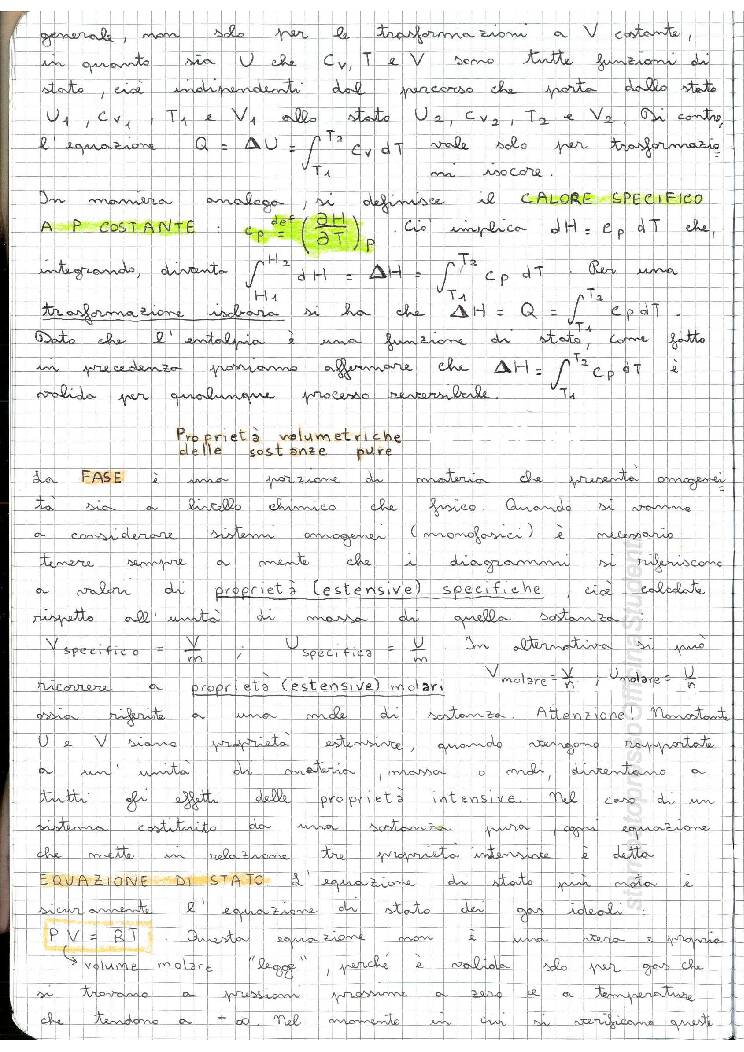 generale, non solo per le trasformazioni a V costante,
in quanto sia U che Cv, T e V sono tutte funzioni di
stato, cioè indipendenti dal percorso che porta dallo stato
U₁, Cv₁, T₁ e V₁ allo stato U₂, Cv₂, T₂ e V₂. Di contro,
l'equazione Q = ΔU = ∫_T₁^T₂ Cv dT vale solo per trasformazio
ni isocore.
In maniera analoga, si definisce il CALORE SPECIFICO
A P COSTANTE : cp =^def (∂H/∂T)_P . Ciò implica dH = cp dT che,
integrando, diventa ∫_H₁^H₂ dH = ΔH = ∫_T₁^T₂ cp dT . Per una
trasformazione isobara si ha che ΔH = Q = ∫_T₁^T₂ cp dT.
Dato che l'entalpia è una funzione di stato, come fatto
in precedenza possiamo affermare che ΔH = ∫_T₁^T₂ cp dT è
valida per qualunque processo reversibile.
Proprietà volumetriche
delle sostanze pure
La FASE è una porzione di materia che presenta omogenei
tà sia a livello chimico che fisico. Quando si vanno
a considerare sistemi omogenei (monofasici) è necessario
tenere sempre a mente che i diagrammi si riferiscono
a valori di proprietà (estensive) specifiche, cioè calcolate
rispetto all'unità di massa di quella sostanza
V specifico = V/m ; U specifica = U/m . In alternativa si può
ricorrere a proprietà (estensive) molari V molare = V/n ; U molare = U/n
ossia riferite a una mole di sostanza. Attenzione! Nonostante
U e V siano proprietà estensive, quando vengono rapportate
a un'unità di materia, massa o moli, diventano a
tutti gli effetti delle proprietà intensive. Nel caso di un
sistema costituito da una sostanza pura, ogni equazione
che mette in relazione tre proprietà intensive è detta
EQUAZIONE DI STATO L'equazione di stato più nota è
sicuramente l'equazione di stato dei gas ideali.
PV = RT . Questa equazione non è una vera e propria
↳ volume molare "legge", perché è valida solo per gas che
si trovano a pressioni prossime a zero e a temperature
che tendono a +∞. Nel momento in cui si verificano queste